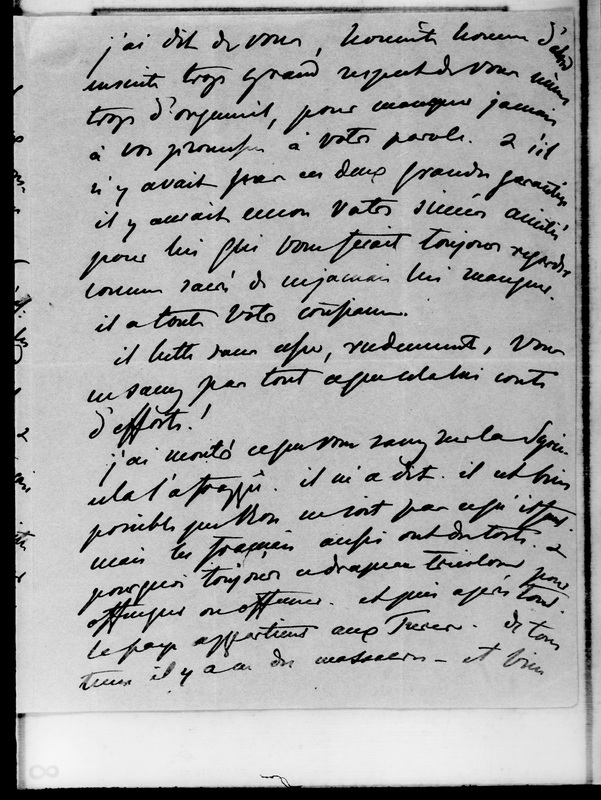 j'ai dit de vous, honnête homme d'abord
ensuite trop grand respect de vous même
trop d'orgueil, pour manquer jamais
à vos promesses à votre parole. & s'il
n'y avait pas ces deux grandes garanties
il y aurait encore votre sincère amitié
pour lui qui vous ferait toujours regarder
comme sacré de ne jamais lui manquer.
il a toute votre confiance.
il lutte sans cesse, rudement, vous
ne savez pas tout ce que cela lui coute
d'efforts!
j'ai montré ce que vous savez sur la Syrie
cela l'a frappé. il m'a dit. il est bien
possible que ce soit pas
mais les français aussi ont des torts. &
pourquoi toujours ce drapeau tricolore pour
offusquer ou offenser. et puis après tout
le pays appartient aux Turcs. de tous
tems il y a eu des massacres – et bien